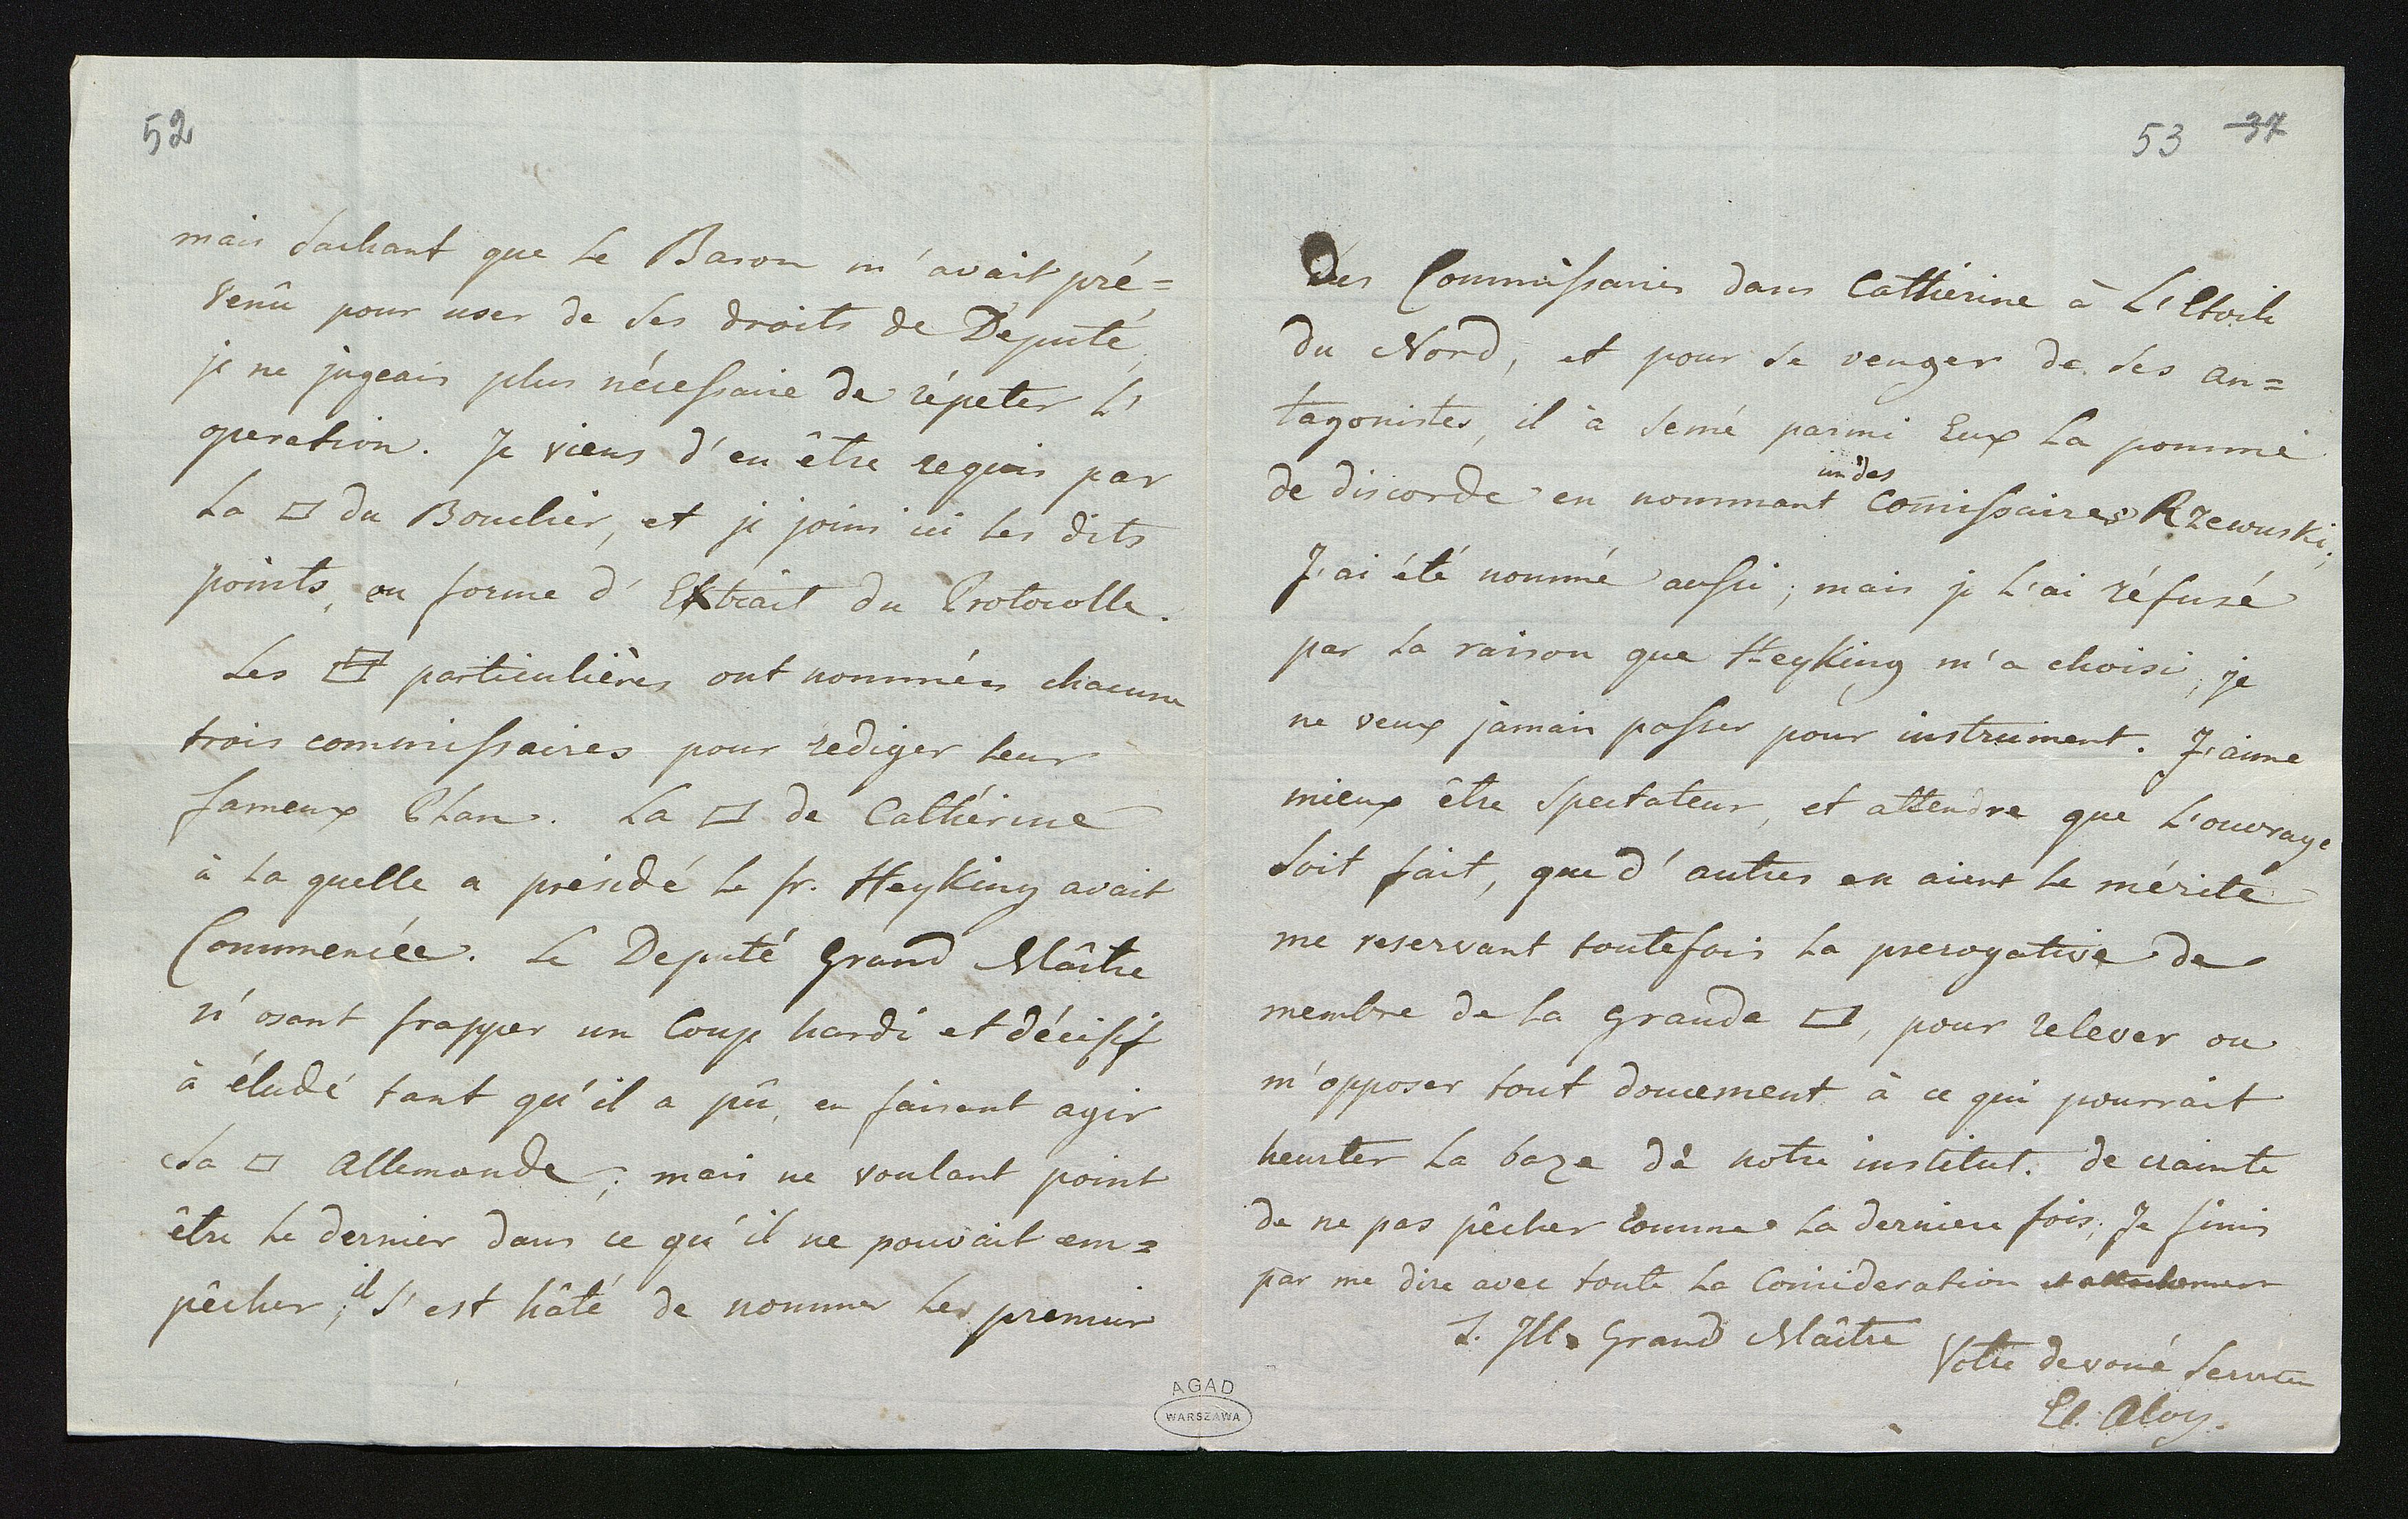 52
mais sachant que le Baron m'avait pré=
venû pour user de ses droits de Deputé,
je ne jugeais plus nécessaire de répeter l'
operation. Je viens d'en être requis par
la □ du Bouclier, et je joins ici les dits
points, en forme d'Extrait du Protocolle.
Les □ particulières ont nommées chacune
trois commissaires pour rediger leur
fameux Plan. La □ de Cathérine
à la quelle a présidé le fr. Heyking avait
Commencée. Le Deputé Grand Maître
n'osant frapper un Coup hardi et décisif
à éludé tant qu'il a pû, en faisant agir
La □ Allemande; mais ne voulant point
être le dernier dans ce qu'il ne pouvait em=
pêcher; il s'est hâté de nommer les premier
53 37
Des Commissaires dans Cathérine à L'Etoile
du Nord, et pour se venger de ses an=
tagonistes, il à semé parmi Eux la pomme
de discorde en nommant un des Comissaires Rzewuski;
J'ai été nommé aussi; mais je l'ai réfusé
par la raison que Heyking m'a choisi, je
ne veux jamais passer pour instrument. J'aime
mieux être Spectateur, et attendre que l'ouvrage
soit fait, que d'autres en aient le mérite
me reservant toutefois la prerogative de
membre de la grande □, pour relever ou
m'opposer tout doucement à ce qui pourrait
heurter la baze de notre institut. de crainte
de ne pas pêcher comme la derniere fois; Je finis
par me dire avec toute la Consideration et attachement
S. Ill. Grand Maître
Votre devoué Serviteur
El. Aloy.
AGAD
WARSZAWA